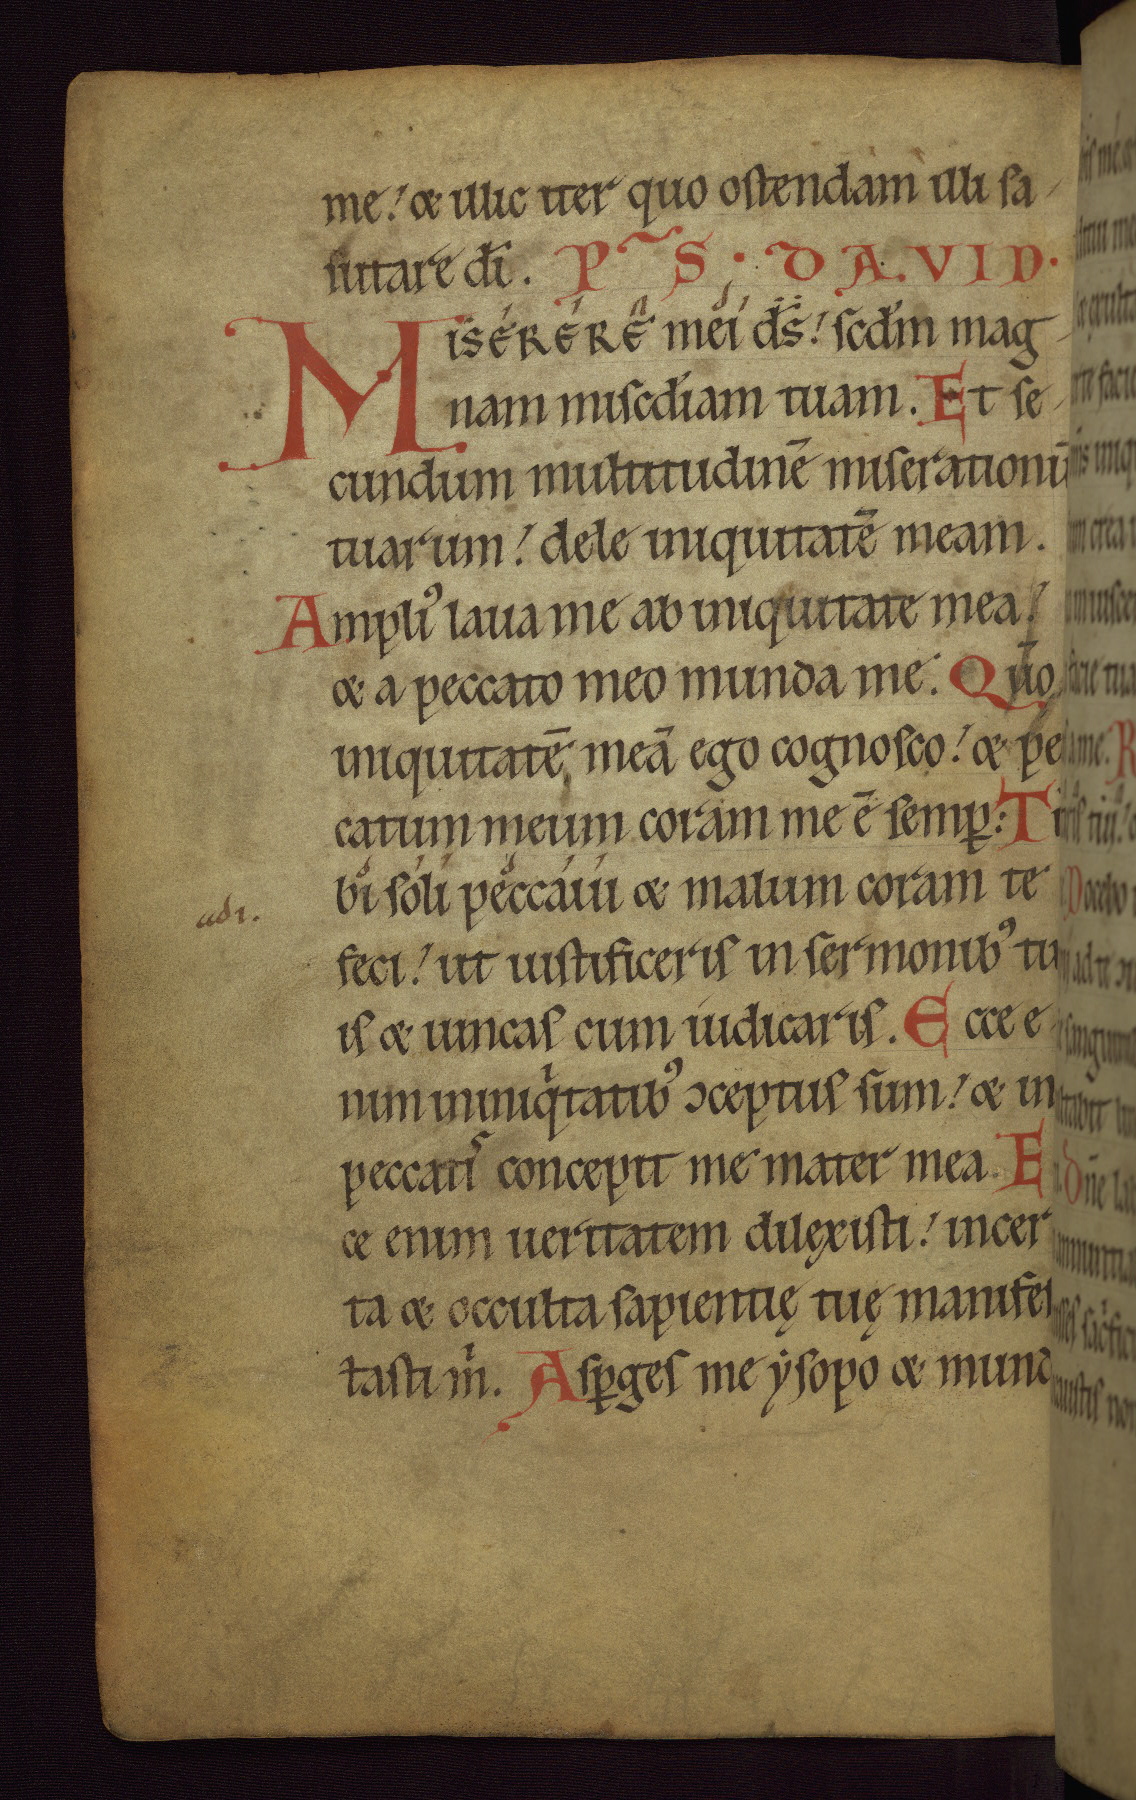 me. & illic iter quo ostendam illi sa-
lutare dī. P͂S. DAVID.
Miserere mei d̄s. scd̄m mag-
nam misc̄diam tuam. Et se-
cundum multitudinē miserationū
tuarum. dele iniquitatē meam.
Ampliꝰ laua me ab iniquitate mea.
& a peccato meo munda me. Qūo
iniquitatē meā ego cognosco. & pec
catum meum coram me ē semꝑ. Ti
bi soli peccaui & malum coram te
adi.
feci. ut iustificeris in sermonibꝰ tu
is & uincas cum iudicaris. Ecce e-
nim in iniqͥtatibꝰ ↄceptus sum. & in
peccatis concepit me mater mea. Ec
ce enim ueritatem dilexisti. incer
ta & occulta sapientię tuę manifes
tasti m̄. Asꝑges me ysopo & mund